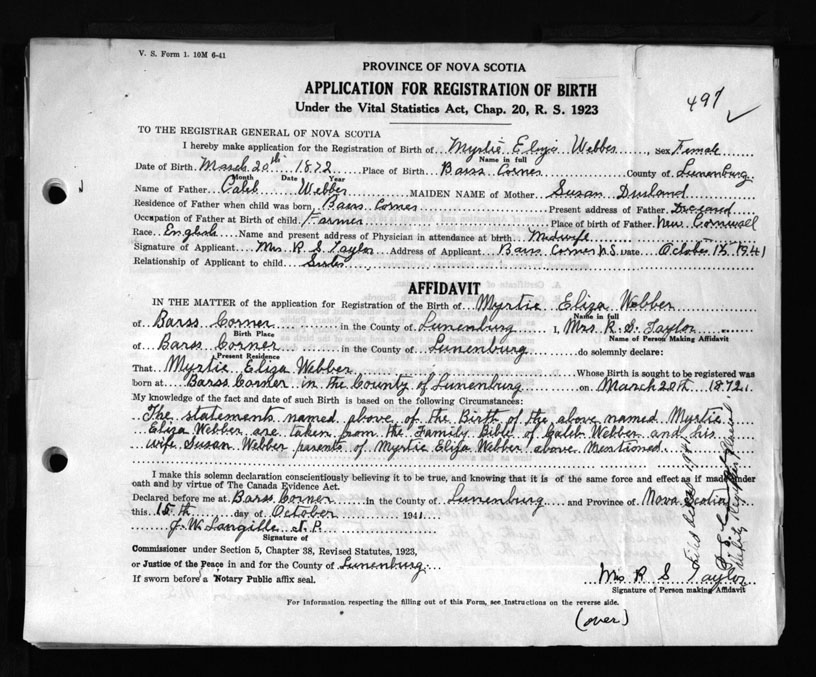 V. S. Form 1. 10M 6-41
PROVINCE OF NOVA SCOTIA
APPLICATION FOR REGISTRATION OF BIRTH
Under the Vital Statistics Act, Chap. 20, R. S. 1923
497
TO THE REGISTRAR GENERAL OF NOVA SCOTIA
I hereby make application for the Registration of Birth of Myrtie Webber, sex Female
Name in full
Date of Birth March 20th 1872 Place of Birth Barss Corner County of Lunenburg
Month Date Year
Name of Father Caleb Webber MAIDEN NAME of Mother Susan Durland
Residence of Father when child was born, Barss Corner Present address of Father Deceased
Occupation of Father at Birth of child Farmer Place of birth of Father New Cornwall
Race. English Name and present address of Physician in attendance at birth Midwife
Signature of Applicant Mrs R S Taylor Address of Applicant Barss Corner N.S. Date October 15 1941
Relationship of Applicant to child Sister
AFFIDAVIT
IN THE MATTER of the application for Registration of the Birth of Myrtie Eliza Webber
Name in full
of Barss Corner in the County of Lunenburg I, Mrs. R. S. Taylor
Birth Place Name of Person Making Affidavit
of Barss Corner in the County of Lunenburg do solemnly declare:
Present Residence
That Myrtie Eliza Webber Whose Birth is sought to be registered was
born at Barss Corner in the County of Lunenburg on March 20th 1872
My knowledge of the fact and date of such Birth is based on the following Circumstances:
The statements named above of the Birth of the above named Myrtie
Eliza Webber are taken from the Family Bible of Caleb Webber and his
wife Susan Webber parents of Myrtie Eliza Webber above Mentioned
I make this solemn declaration conscientiously believing it to be true, and knowing that it is of the same force and effect as if made under
oath and by virtue of The Canada Evidence Act.
Declared before me at Barss Corner in the County of Lunenburg and Province of Nova Scotia
this 15th day of October 1941
J. W. Langille J. P.
Signature of
Commissioner under Section 5, Chapter 38, Revised Statutes, 1923,
or Justice of the Peace in and for the County of Lunenburg
If sworn before a Notary Public affix seal.
Mrs R S Taylor
Signature of Person making Affidavit
For Information respecting the filling out of this Form, see Instructions on the reverse side.
(over)